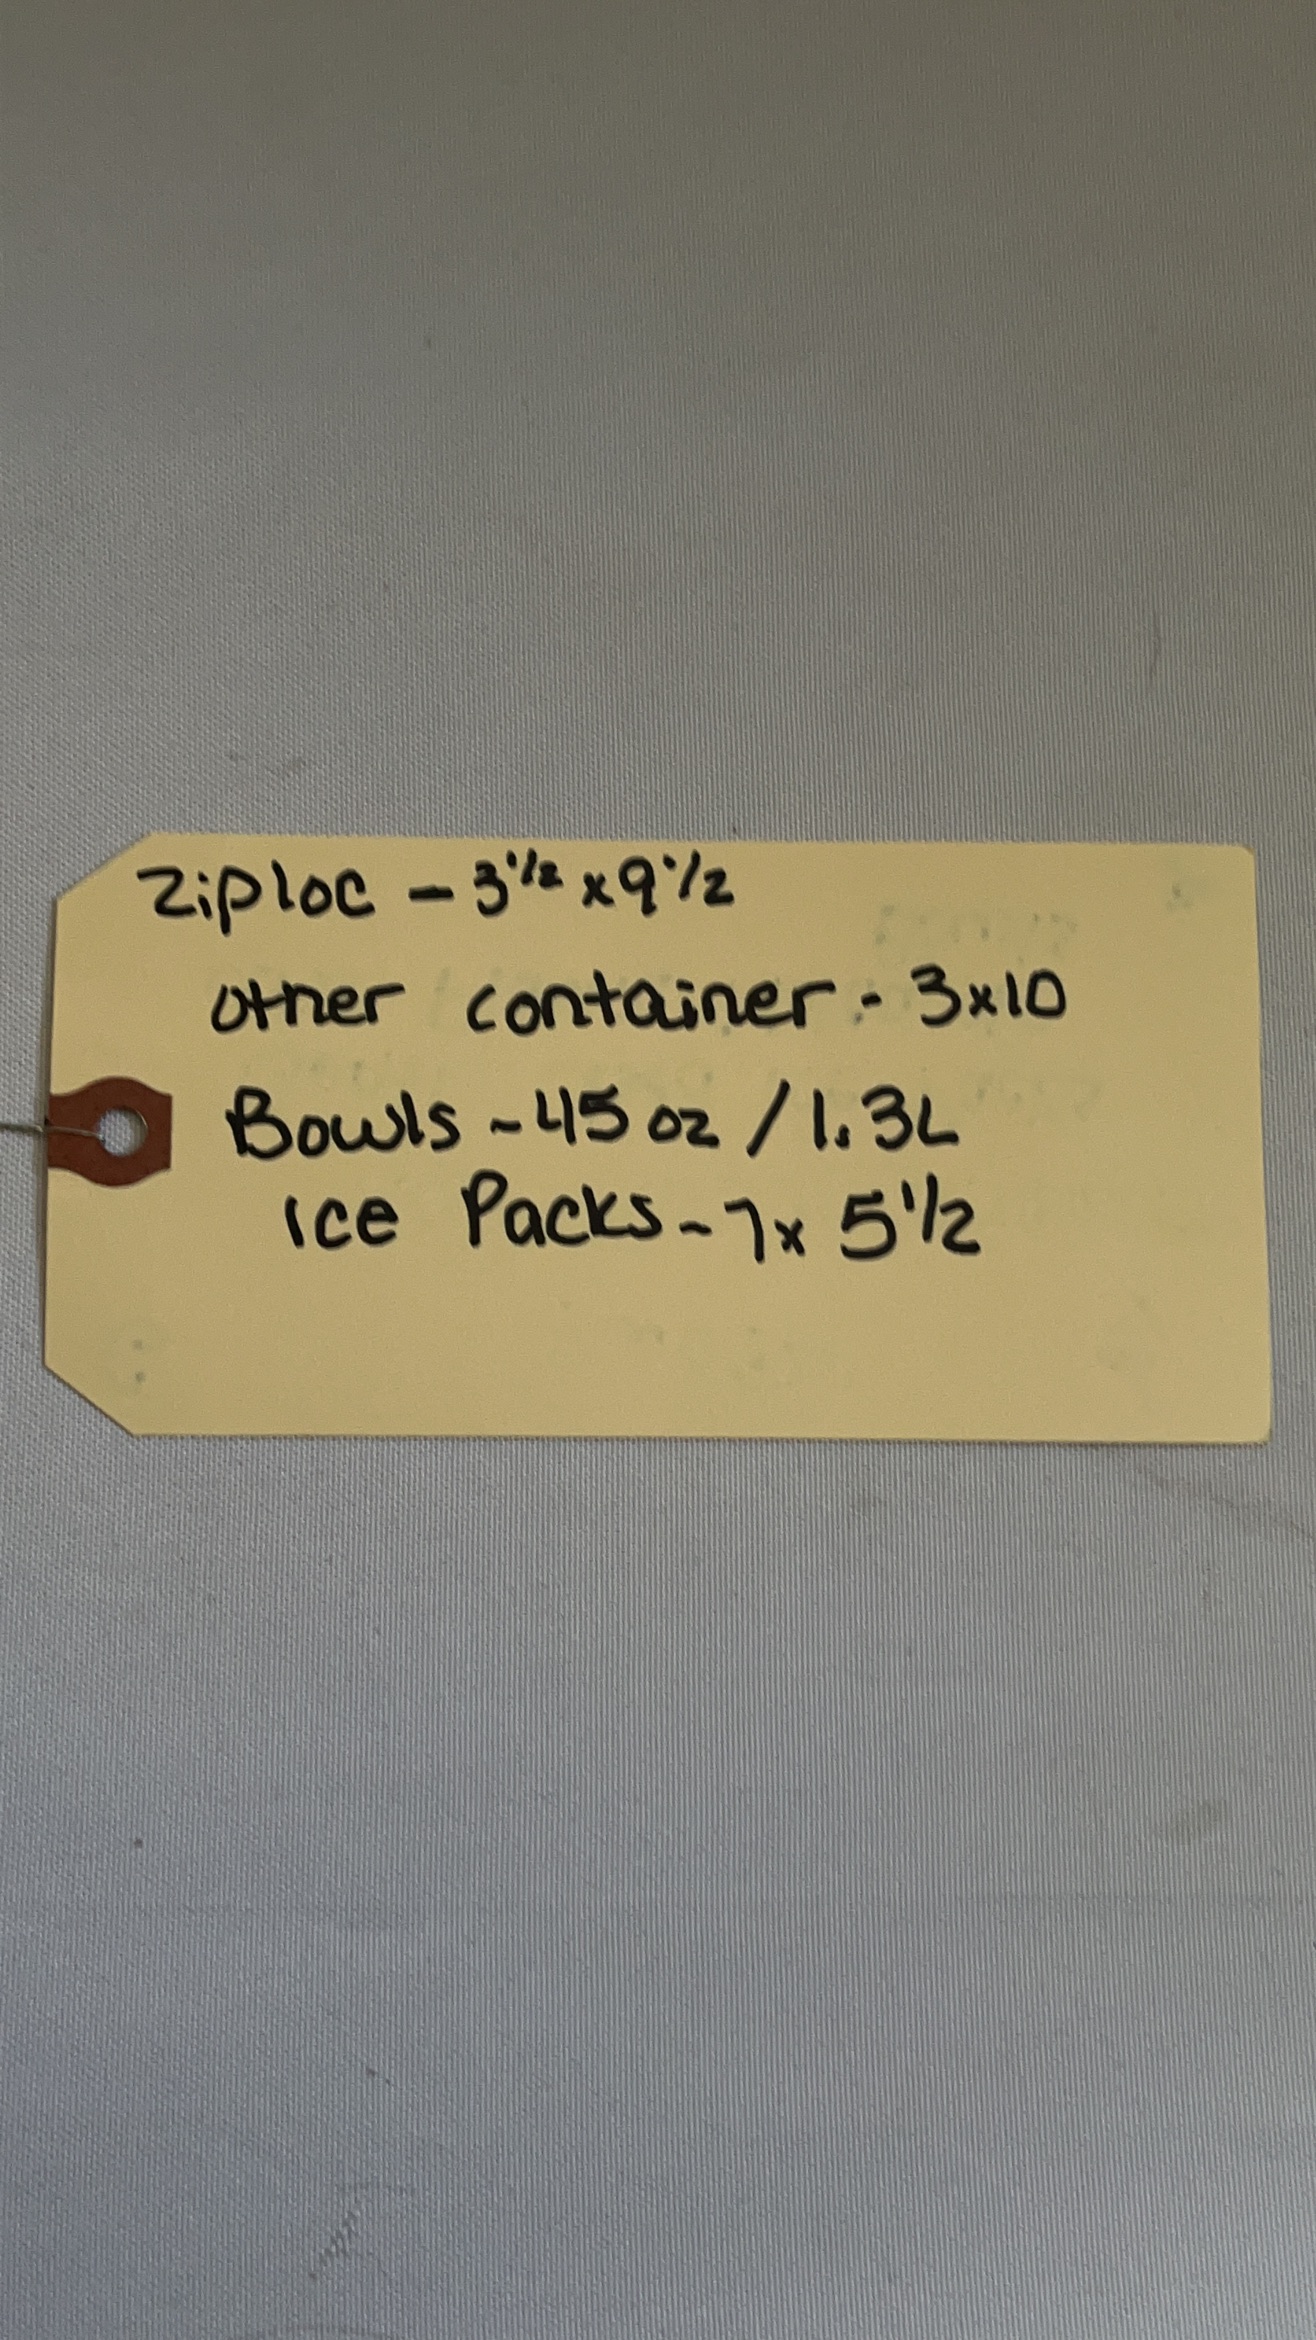 Ziploc - 3 1/2 x 9 1/2
other container - 3x10
Bowls - 45 oz / 1.3L
ice Packs - 7x 5 1/2